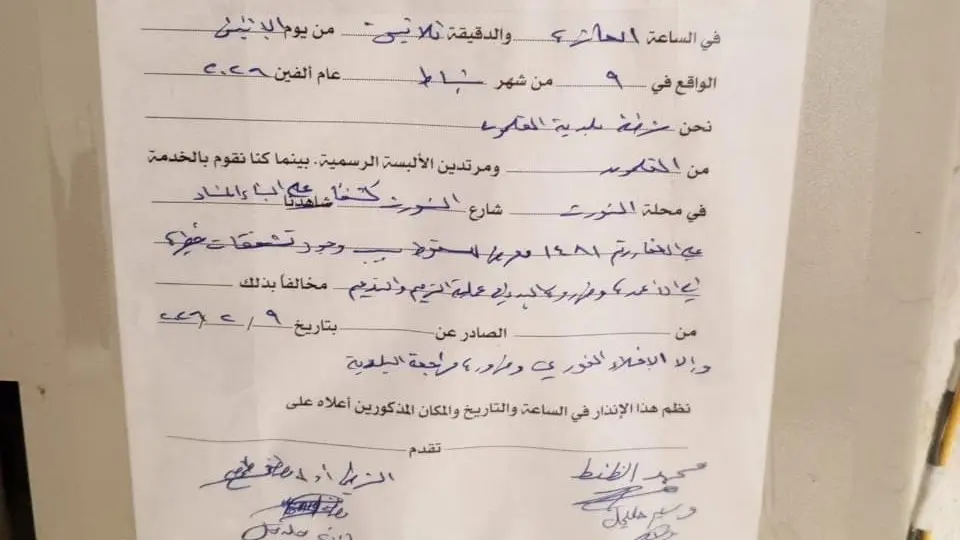 في الساعة الحادية والدقيقة ثلاثين من يوم الاثنين
الواقع في ٩ من شهر شباط عام ألفين ٢٠٢٦
نحن شرطة بلدية القلمون
من القلمون ومرتدين الألبسة الرسمية. بينما كنا نقوم بالخدمة
في محلة شارع شاهدنا كشفاً على البناء المشاد
على العقار رقم ١٤٨١ معرض للسقوط بسبب وجود تشققات خطيرة
في الأعمدة وضرورة البدء في عملية الترميم والتدعيم مخالفاً بذلك
من الصادر عن بتاريخ ٩ / ٢ / ٢٠٢٦
وإلا الإخلاء الفوري وضرورة مراجعة البلدية
نظم هذا الإنذار في الساعة والتاريخ والمكان المذكورين أعلاه على
تقدم
محمد الظنط
وسيم